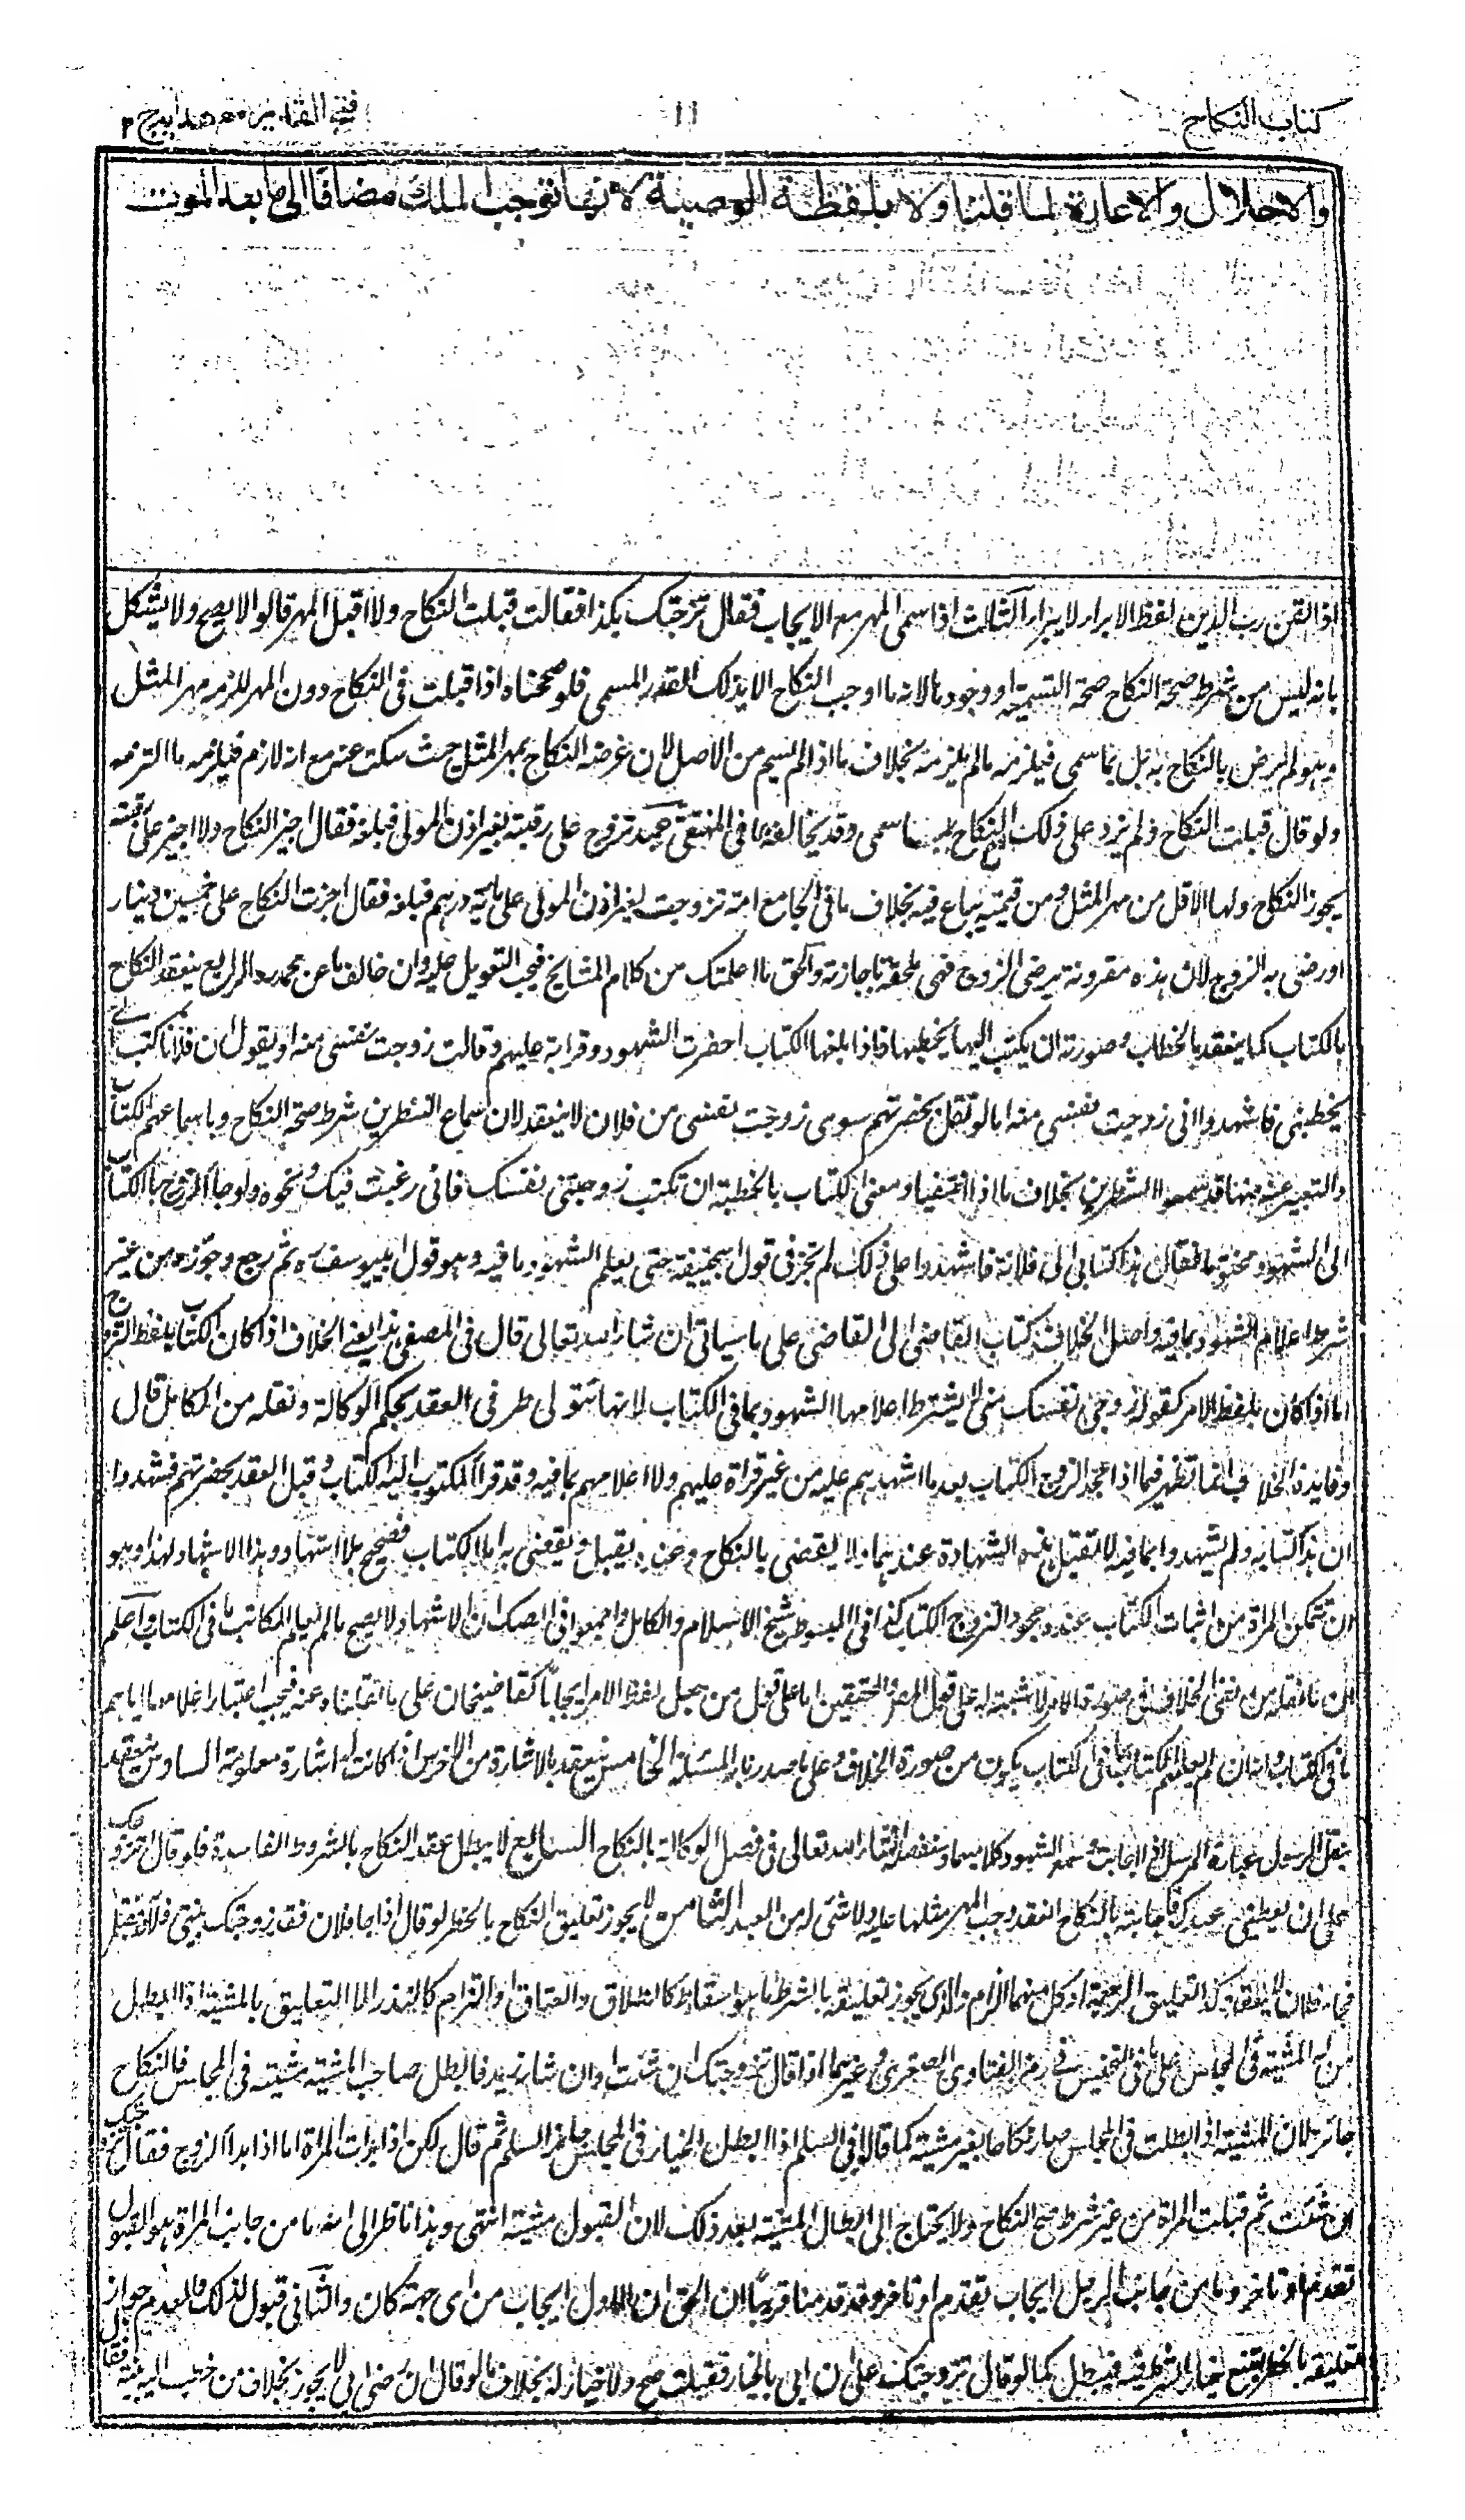 كتاب النكاح
١١
فتح القدير مع هدايه ج ٢
والاحلال والاعارة لما قلنا ولا بلفظة الوصية لانها توجب الملك مضافا الى ما بعد الموت
اذ القن رب الدين لفظ الابراء لا يبرأ الثالث اذا سمى المهر مع الايجاب فقال تزوجتك بكذا فقالت قبلت النكاح ولا اقبل المهر قالوا لا يصح ولا يشكل
بانه ليس من شرط صحة النكاح صحة التسمية او وجودها لانه ما اوجب النكاح الا بذلك القدر المسمى فلو صححناه اذا قبلت فى النكاح دون المهر للزمه مهر المثل
وهو لم يرض بالنكاح به بل بما سمى فيلزمه ما لم يلتزمه بخلاف ما اذا لم يسم من الاصل لان غرضه النكاح بمهر المثل حيث سكت عنه مع انه لازم فيلزمه ما التزمه
ولو قال قبلت النكاح ولم يزد على ذلك صح النكاح بما سمى وقد يخالفه ما فى المنتقى عبد تزوج على رقبته بغير اذن المولى فبلغه فقال اجيز النكاح ولا اجيز على رقبته
يجوز النكاح ولها الاقل من مهر المثل ومن قيمته يباع فيه بخلاف ما فى الجامع امة تزوجت بغير اذن المولى على مائة درهم فبلغه فقال اجزت النكاح على خمسين دينار
اورضى به الزوج لان هذه مقرونة برضى الزوج فهى ملحقة باجازته والحق ما اعلمتك من كلام المشايخ فيجب التعويل عليه وان خالف ما عن محمد رح الرابع ينعقد النكاح
بالكتاب كما ينعقد بالخطاب وصورته ان يكتب اليها يخطبها فاذا بلغها الكتاب احضرت الشهود وقراته عليهم وقالت زوجت نفسى منه او يقول ان فلانا كتب الى
يخطبنى فاشهدوا انى زوجت نفسى منه اما لو لم تقل بحضرتهم سوى زوجت نفسى من فلان لا ينعقد لان سماع الشطرين شرط صحة النكاح وباسماعهم الكتاب
والتعبير عنه منها قد سمعوا الشطرين بخلاف ما اذا انتفيا ومعنى الكتاب بالخطبة ان تكتب زوجتنى نفسك فانى رغبت فيك ونحوه ولو جاء الزوج بالكتاب
الى الشهود مختوما فقال هذا كتابى الى فلانة فاشهدوا على ذلك لم تجز فى قول ابيحنيفة حتى يعلم الشهود ما فيه وهو قول ابييوسف رح ثم رجع وجوزه من غير
شرط اعلام الشهود بما فيه واصل الخلاف كتاب القاضى الى القاضى على ما سياتى ان شاء الله تعالى قال فى المصفى هذا يعنى الخلاف اذا كان الكتاب بلفظ التزوج
اما اذا كان بلفظ الامر كقوله زوجى نفسك منى لا يشترط اعلامها الشهود بما فى الكتاب لانها تتولى طرفى العقد بحكم الوكالة ونقله من الكامل قال
وفايدة الخلاف انما تظهر فيما اذا جحد الزوج الكتاب بعد ما اشهدهم عليه من غير قراة عليهم ولا اعلامهم بما فيه وقد قرأ المكتوب اليه الكتاب وقبل العقد بحضرتهم فشهدوا
ان هذا كتابه ولم يشهدوا بما فيه لا تقبل هذه الشهادة عندهما ولا يقضى بالنكاح وعنده يقبل ويقضى به اما الكتاب فصحيح بلا اشهاد وهذا الاشهاد لهذا وهو
ان تتمكن المراة من اثبات الكتاب عند جحود الزوج الكتاب كذا فى المبسوط شيخ الاسلام والكامل واجمعوا فى الصك ان الاشهاد لا يصح ما لم يعلم المكاتب ما فى الكتاب واعلم
ان ما نقله من نفى الخلاف فى صورة الامر لا شبهة له على قول المص والمحققين اما على قول من جعل لفظ الامر ايجابا كقاضيخان على ما نقلناه عنه فيجب اعتبار اعلامها اياهم
ما فى الكتاب وان لم يعلمهم الكتاب بما فى الكتاب يكون من صورة الخلاف على ما صدرنا به المسئلة الخامس ينعقد بالاشارة من الاخرس اذا كانت له اشارة معلومة السادس ينعقد
بنقل الرسول عبارة المرسل اذا اجابت وسمع الشهود كلامهما وسنفصله ان شاء الله تعالى فى فصل الوكالة بالنكاح السابع لا يبطل عقد النكاح بالشروط الفاسدة فلو قال تزوجتك
على ان تعطينى عبدك فاجابته بالنكاح انعقد وجب المهر مثلها عليه ولا شئ له من العبد الثامن لا يجوز تعليق النكاح بالخطر لو قال اذا جاء فلان فقد زوجتك بنتى فلانة فقبل
فجاء فلان لا ينعقد كذا تعليق الرجعة اذ كل منهما الزام والذى يجوز تعليقه بالشرط ما هو اسقاط كالطلاق والعتاق او التزام كالنذر اما التعليق بالمشية اذا ابطل
من له المشية فى المجلس على ما فى التجنيس فى رمز الفتاوى الصغرى وغيرها اذا قال تزوجتك ان شئت او ان شاء زيد فابطل صاحب المشية مشيته فى المجلس فالنكاح
جائز لان المشية اذا بطلت فى المجلس صار نكاحا بغير مشية كما قالوا فى السلم اذا ابطل الخيار فى المجلس جاز السلم ثم قال لكن اذا بدات المراة اما اذا بدأ الزوج فقال تزوجتك
ان شئت ثم قبلت المراة من غير شرط صح النكاح ولا يحتاج الى ابطال المشية بعد ذلك لان القبول مشية انتهى وهذا ناظر الى انه ما من جانب المراة هو القبول
تقدم او تاخر وما من جانب الرجل ايجاب تقدم او تاخر وقد قدمنا قريبا ان الحق ان الاول ايجاب من اى جهة كان والثانى قبول لذلك ولعدم جواز
تعليقه بالخطر يمتنع خيار الشرط فيه فيبطل كما لو قال تزوجتك على ان ابى بالخيار فقبلت صح ولا خيار له بخلاف ما لو قال ان رضى ابى لا يجوز بخلاف من خطب اليه بنته فقال